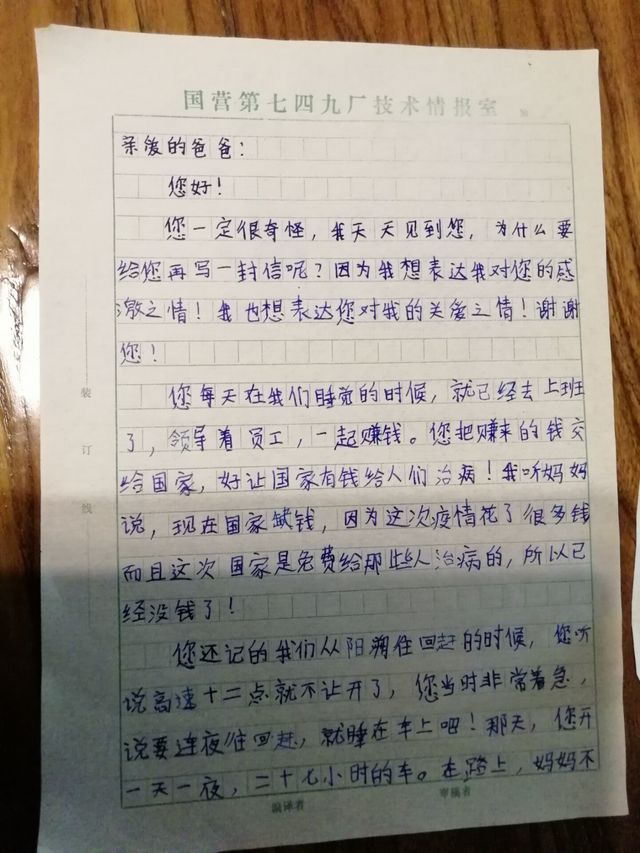 国营第七四九厂技术情报室
亲爱的爸爸：
您好！
您一定很奇怪，我天天见到您，为什么要
给您再写一封信呢？因为我想表达我对您的感
激之情！我也想表达您对我的关爱之情！谢谢
您！
您每天在我们睡觉的时候，就已经去上班
了，领导着员工，一起赚钱。您把赚来的钱交
给国家，好让国家有钱给人们治病！我听妈妈
说，现在国家缺钱，因为这次疫情花了很多钱
而且这次国家是免费给那些人治病的，所以已
经没钱了！
您还记的我们从阳朔往回赶的时候，您听
说高速十二点就不让开了，您当时非常着急，
说要连夜往回赶，就睡在车上吧！那天，您开
一天一夜，二十七小时的车。在路上，妈妈不
装
订
线
编译者
审稿者